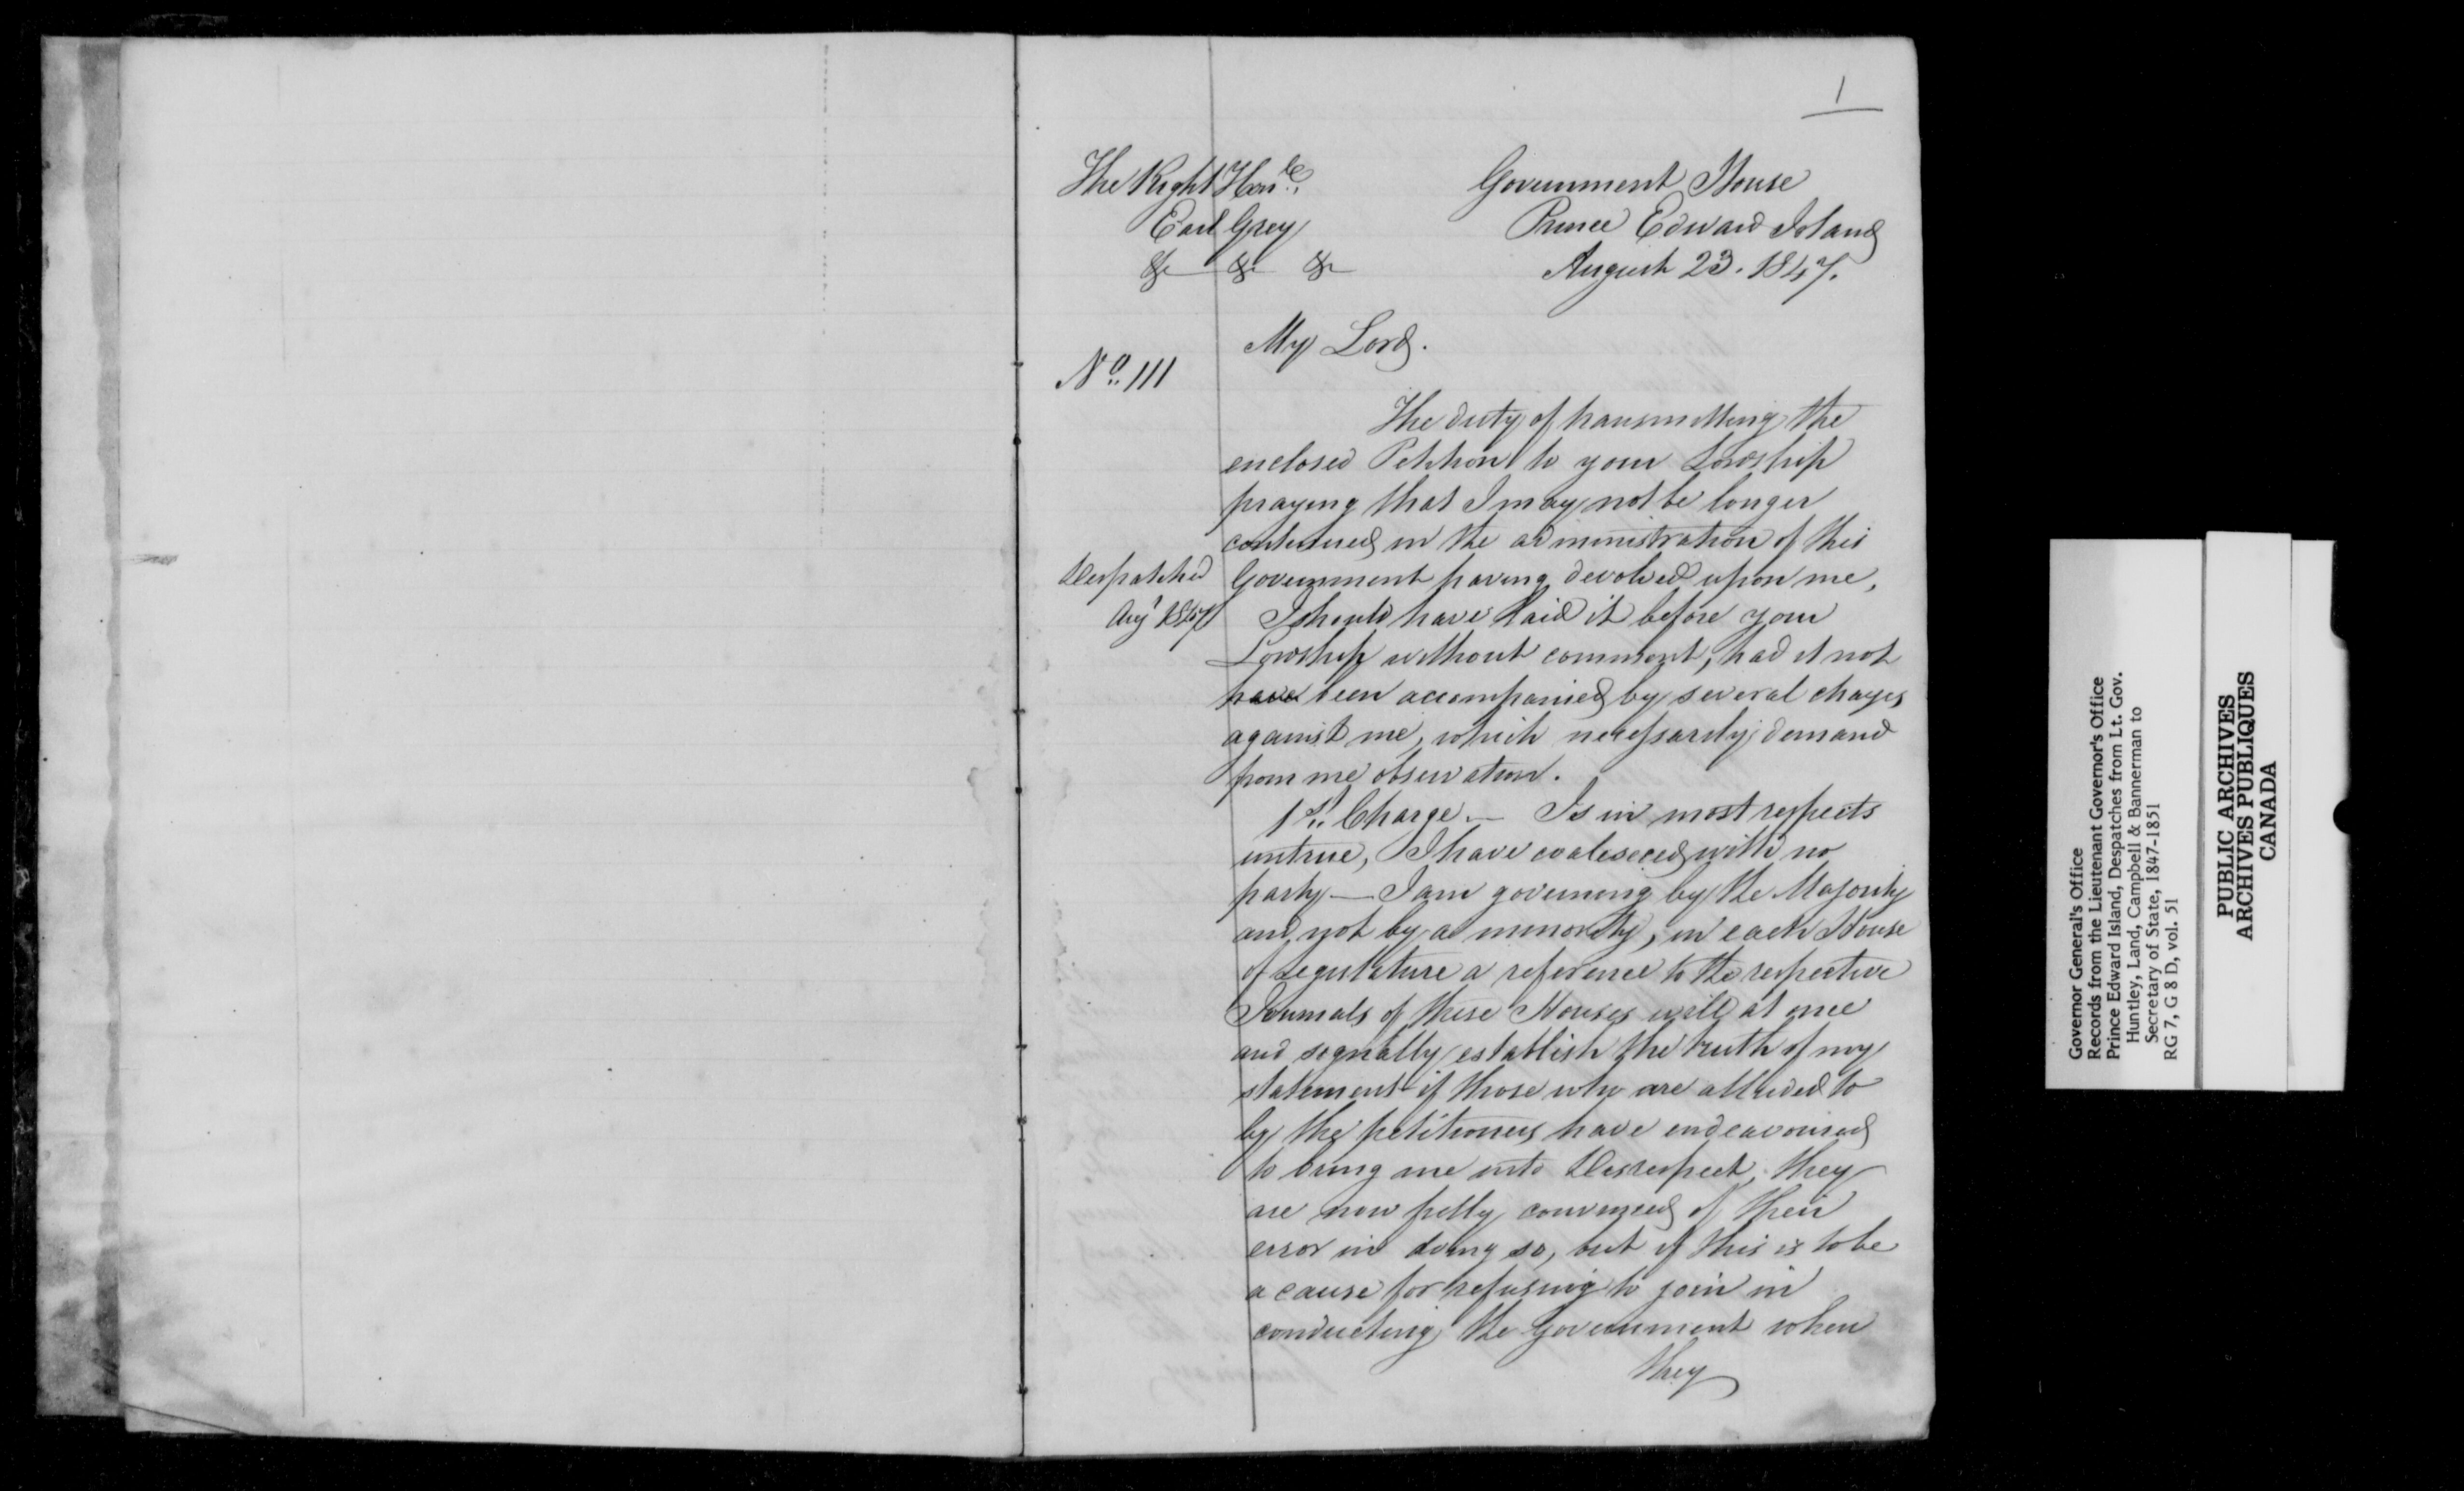 1
The Right Honle.
Earl Grey
&c &c &c
Government House
Prince Edward Island
August 23. 1847.
My Lord.
No. 111
The duty of transmitting the
enclosed Petition to your Lordship
praying that I may not be longer
continued in the administration of this
Despatched
Augt 1847
Government having devolved upon me,
I should have laid it before your
Lordship without comment, had it not
have been accompanied by several charges
against me, which necessarily demand
from me observation.
1st. Charge. — Is in most respects
untrue, I have coalesced with no
party — I am governing by the Majority
and not by a minority, in each House
of Legislature a reference to the respective
Journals of these Houses will at once
and signally establish the truth of my
statement — if those who are alluded to
by the petitioners have endeavoured
to bring me into disrespect, they
are now fully convinced of their
error in doing so, but if this is to be
a cause for refusing to join in
conducting the Government when
they
Governor General's Office
Records from the Lieutenant Governor's Office
Prince Edward Island, Despatches from Lt. Gov.
Huntley, Land, Campbell & Bannerman to
Secretary of State, 1847-1851
RG 7, G 8 D, vol. 51
PUBLIC ARCHIVES
ARCHIVES PUBLIQUES
CANADA